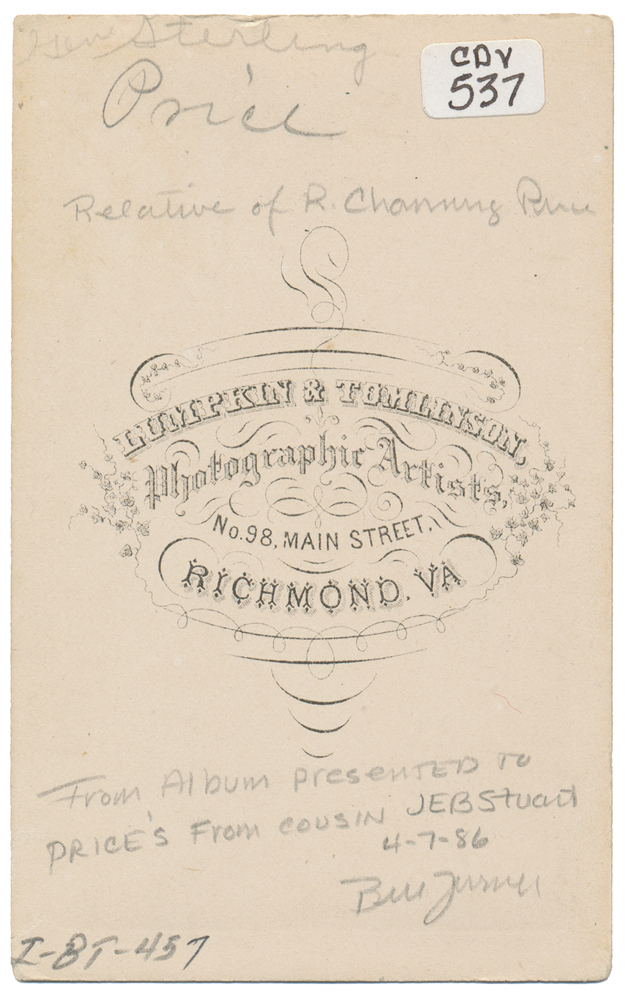 Gen Sterling
Price
CDV
537
Relative of R. Channing Price
LUMPKIN & TOMLINSON,
Photographic Artists,
No. 98, MAIN STREET,
RICHMOND, VA
From Album presented to
PRICE'S From cousin JEB Stuart
4-7-86
Bill Turner
I-BT-457